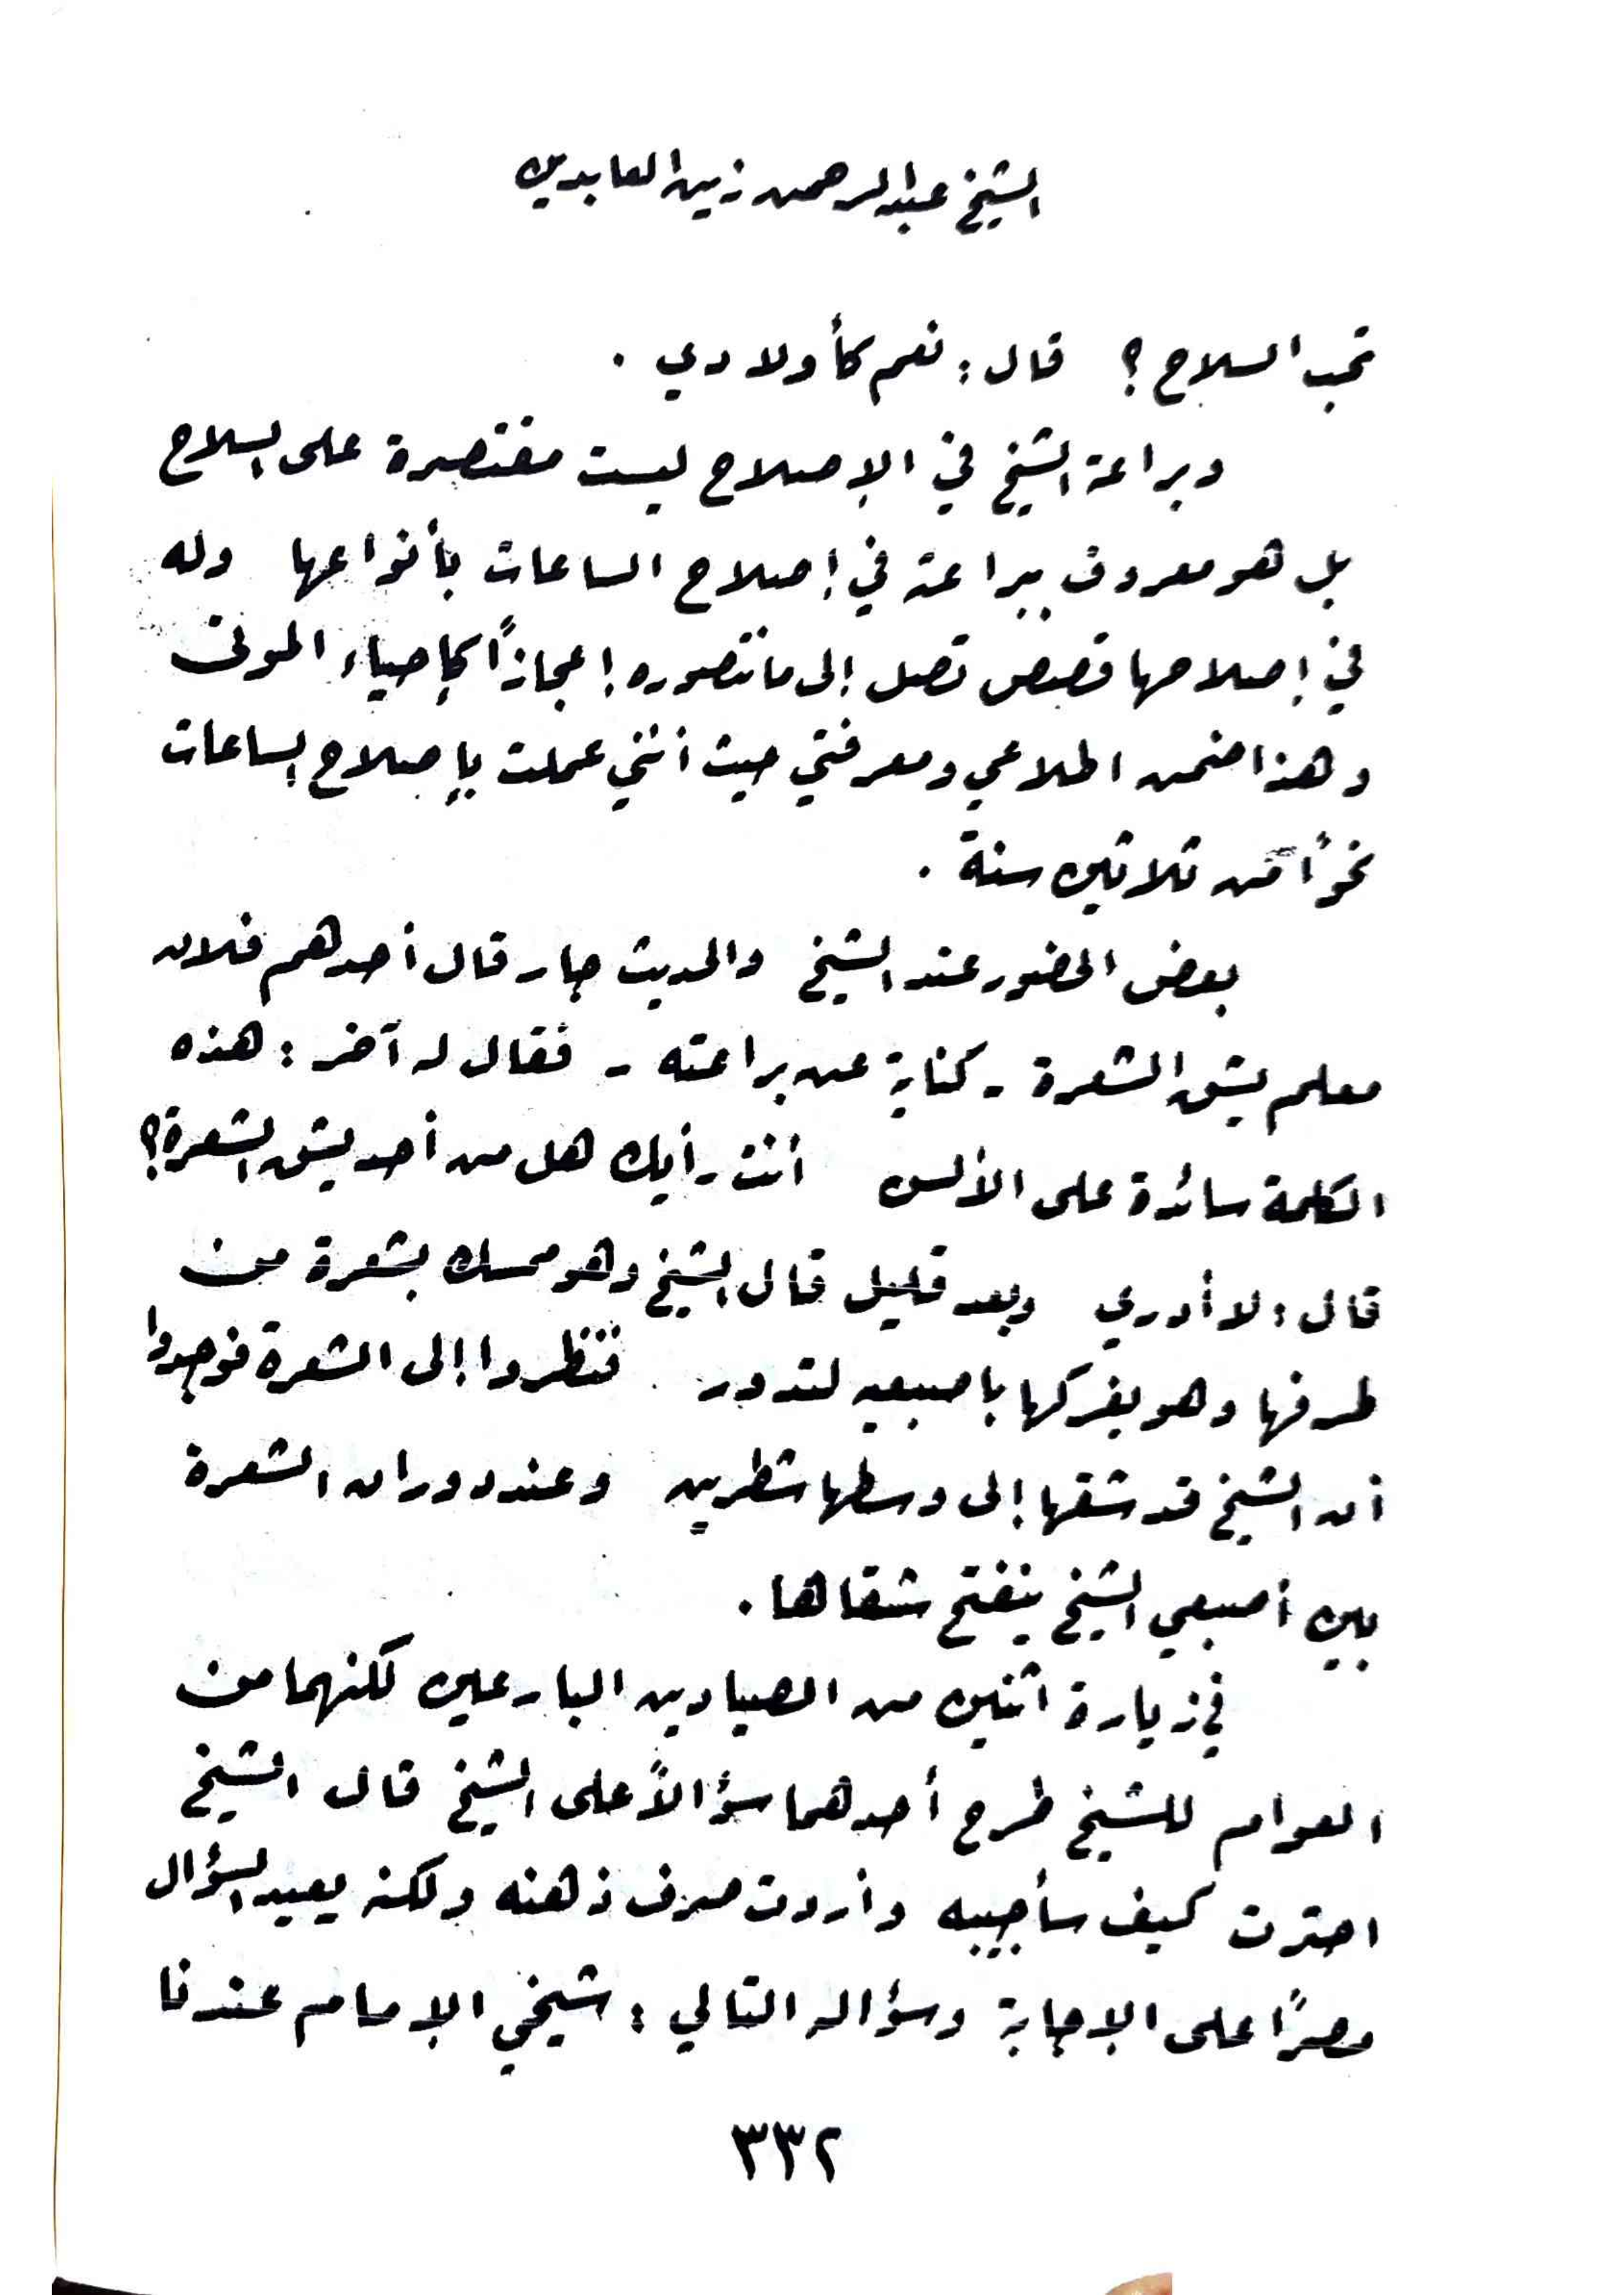 الشيخ عبدالرحمن زين العابدين
تحب السلاح ؟ قال : نعم كأولادي .
وبراعة الشيخ في الإصلاح ليست مقتصرة على السلاح
بل هو معروف ببراعة في إصلاح الساعات بأنواعها وله
في إصلاحها قصص تصل إلى ما نتصوره إعجازاً كإحياء الموتى
وهذا ضمن اطلاعي ومعرفتي حيث أنني عملت بإصلاح الساعات
نحواً من ثلاثين سنة .
بعض الحضور عند الشيخ والحديث جار قال أحدهم فلان
معلم يشق الشعرة - كناية عن براعته - فقال له آخر : هذه
الكلمة سائدة على الألسن أنت رأيك هل من أحد يشق الشعرة ؟
قال : لا أدري وبعد قليل قال الشيخ وهو ممسك بشعرة من
طرفها وهو يفركها بإصبعيه لتدور فنظروا إلى الشعرة فوجدوا
أن الشيخ قد شقها إلى وسطها شطرين وعند دوران الشعرة
بين أصبعي الشيخ ينفتح شقاها .
في زيارة اثنين من الصيادين البارعين لكنهما من
العوام للشيخ طرح أحدهما سؤالاً على الشيخ قال الشيخ
احترت كيف سأجيبه وأردت صرف ذهنه ولكنه يعيد السؤال
مصراً على الإجابة وسؤاله التالي : شيخي الإمام عندنا
٣٣٢